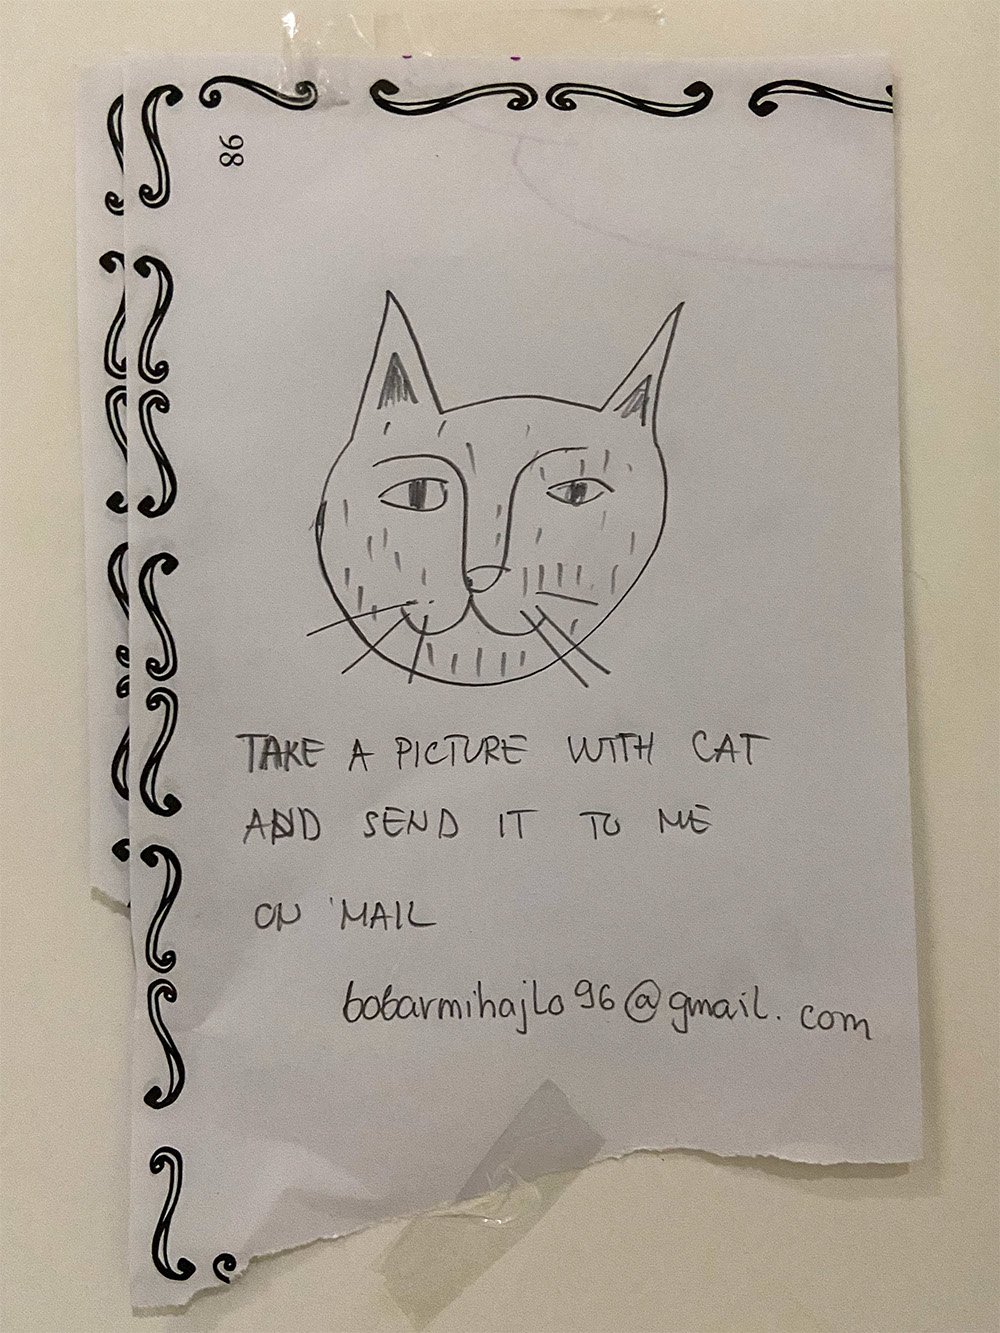 98
TAKE A PICTURE WITH CAT
AND SEND IT TO ME
ON 'MAIL
bobarmihajlo96@gmail.com